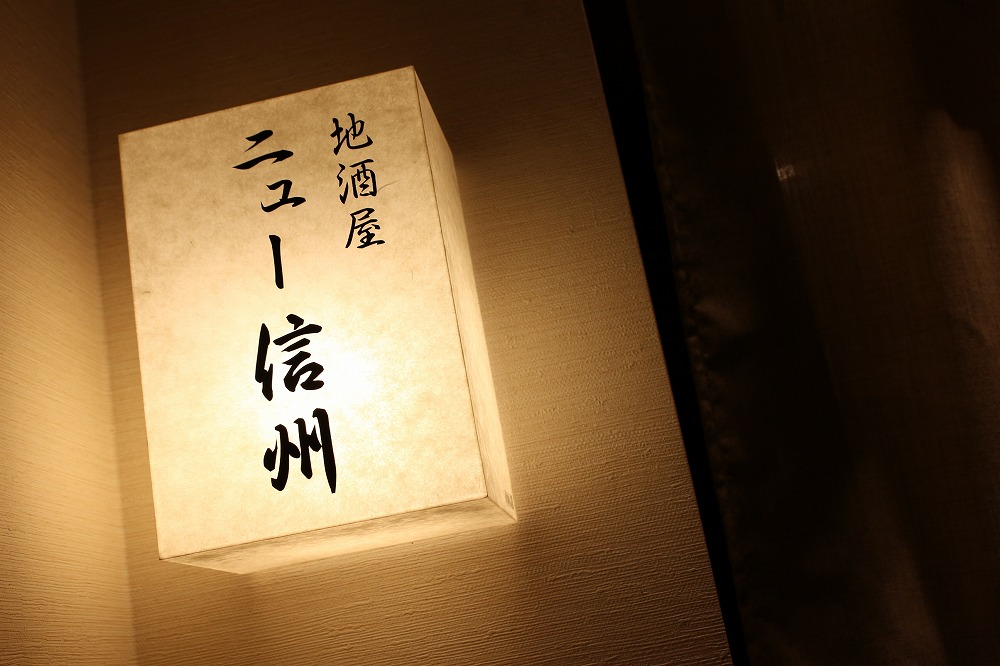 地酒屋
ニュー信州